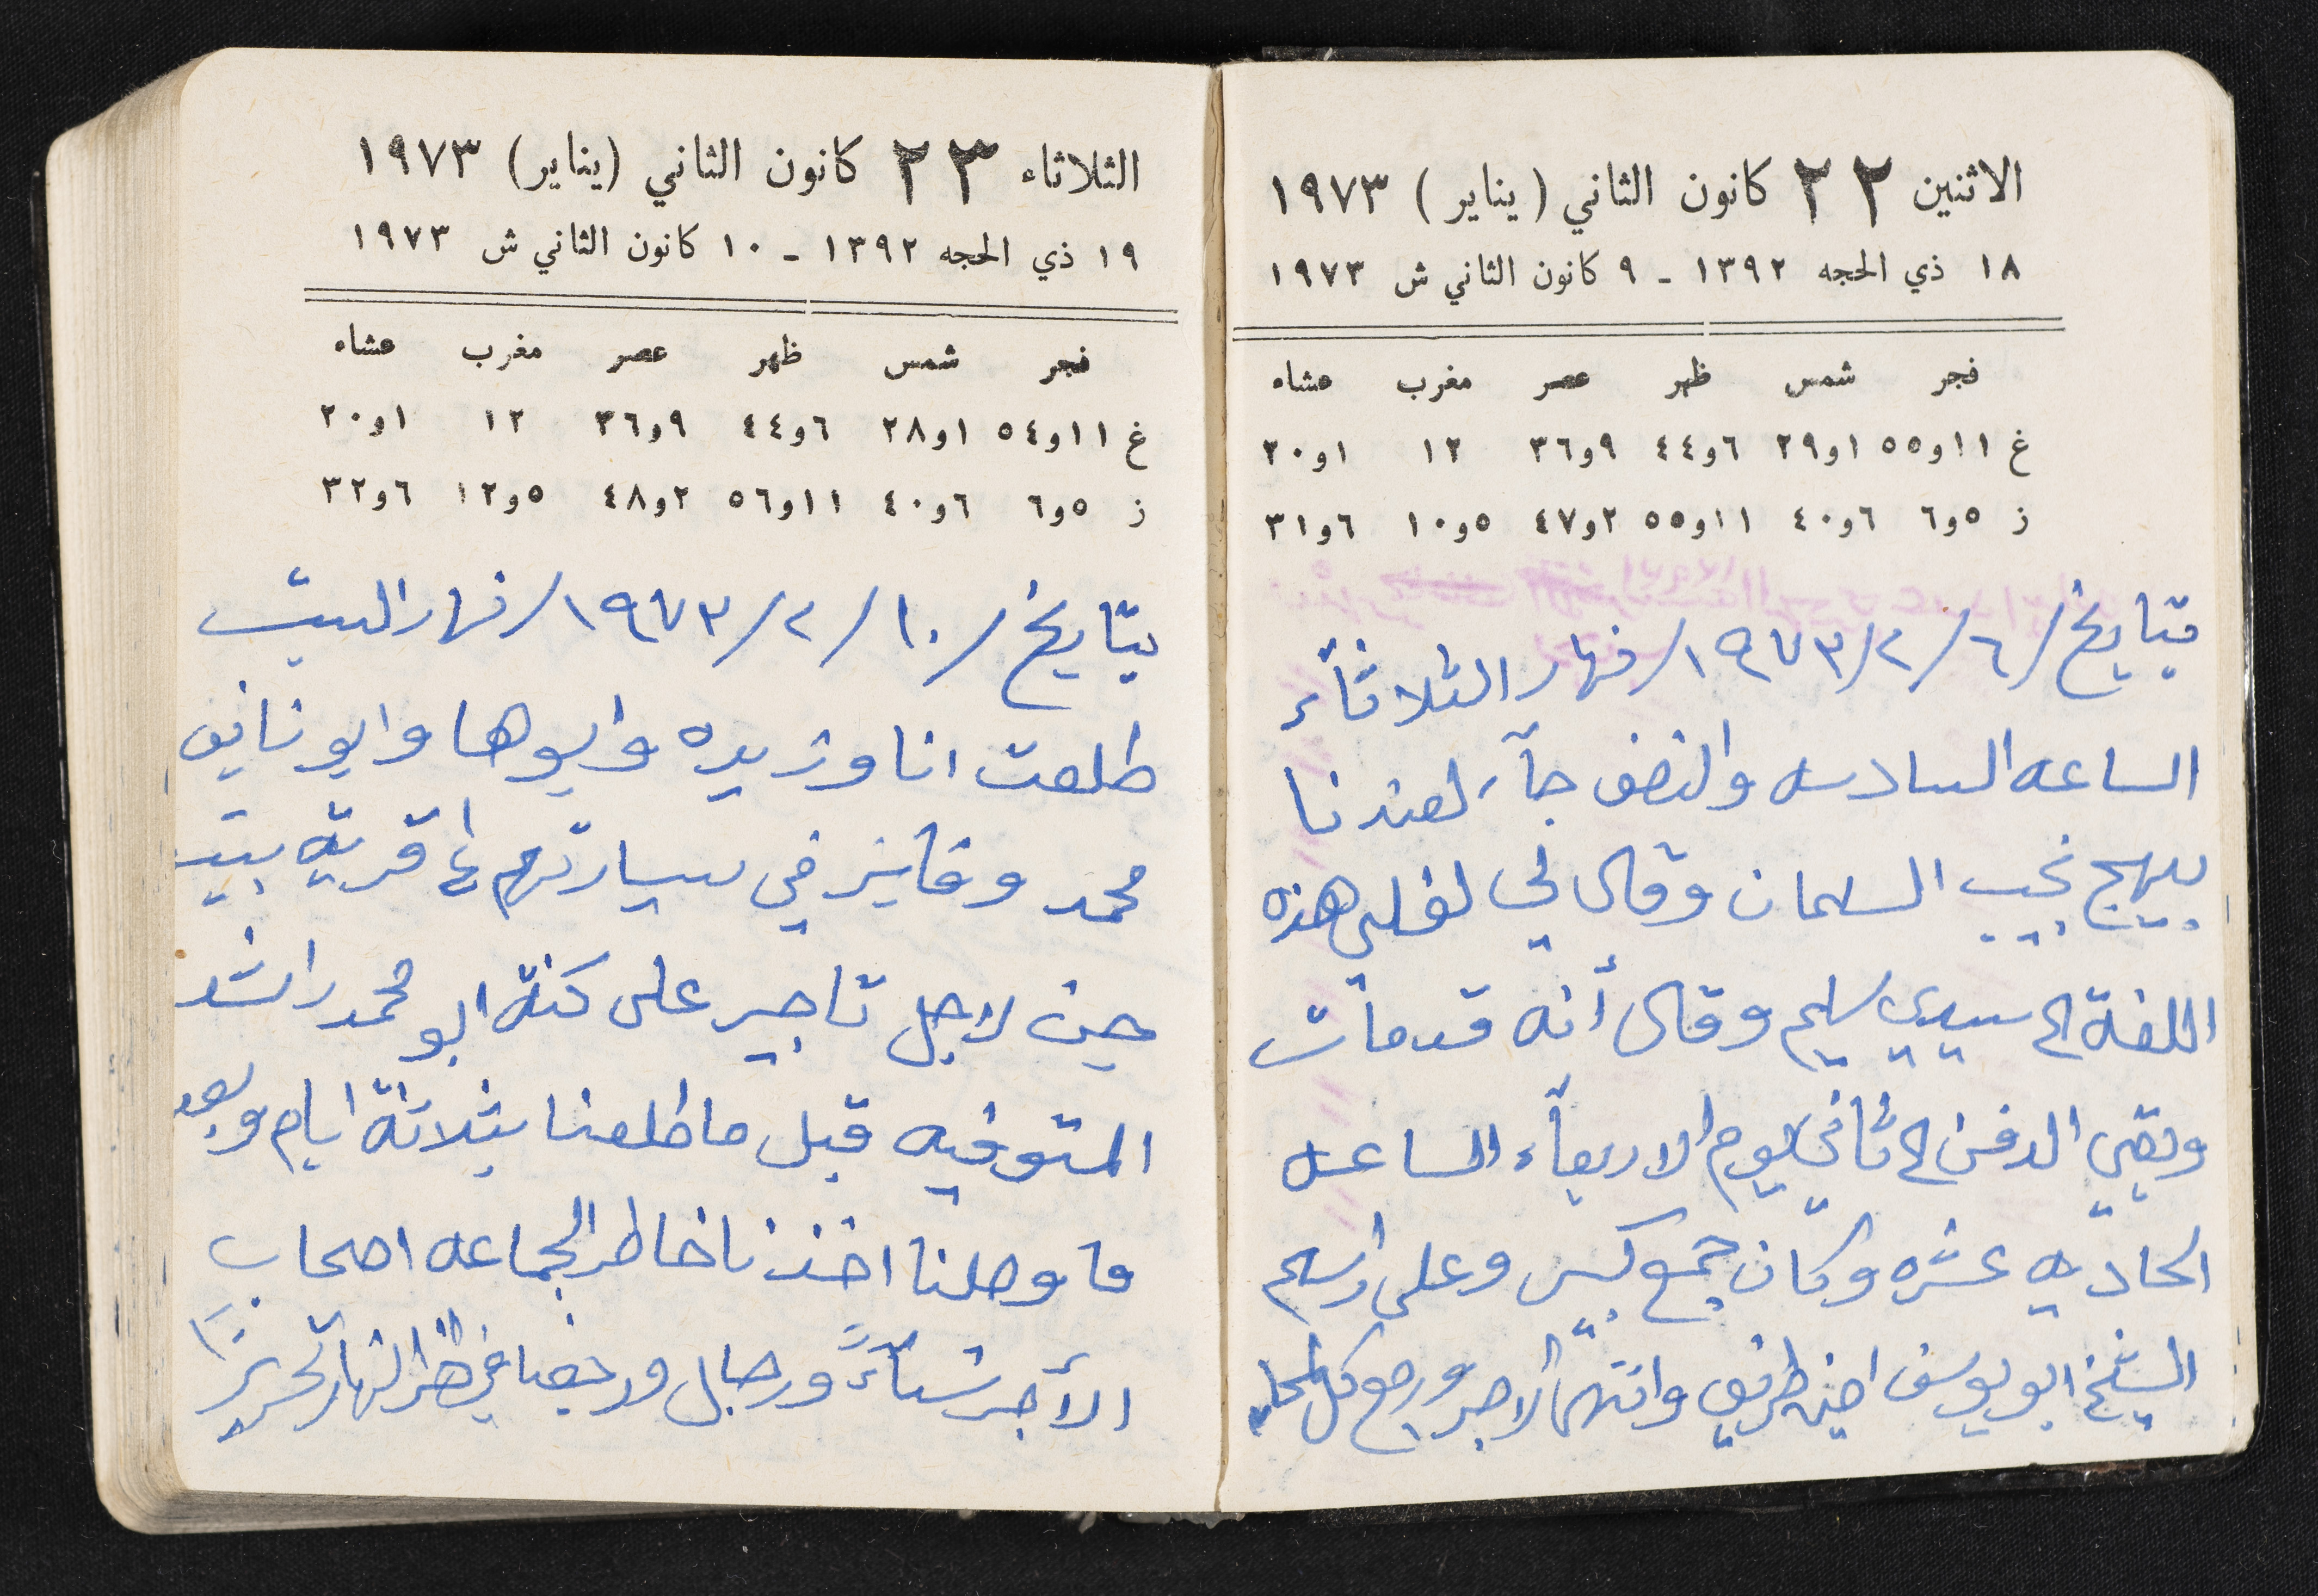 الاثنين ٢٢ كانون الثاني ( يناير ) ١٩٧٣
١٨ ذي الحجه ١٣٩٢ - ٩ كانون الثاني ش ١٩٧٣
فجر شمس ظهر عصر مغرب عشاء
غ ١١و٥٥ ١و٢٩ ٦و٤٤ ٩و٣٦ ١٢ ١و٢٠
ز ٥و٦ ٦و٤٠ ١١و٥٥ ٢و٤٧ ٥و١٠ ٦و٣١
بتايخ / ٦ / ٢ / ١٩٧٣ / نهار الثلاثاء
الساعه السادسه والنصف جآء لعندنا
بهيج نجيب السلمان وقال لي
اللفة الى سيدي سليم وقال أنه قد مات
وبقي الدفن الى ثاني يوم الاربعآء الساعه
الحاديه عشره وكان جمع كبير وعلى راسهم
الشيخ ابو يوسف امين طريف وانتهى الاجر ورجع كل
الثلاثاء ٢٣ كانون الثاني (يناير) ١٩٧٣
١٩ ذي الحجه ١٣٩٢ - ١٠ كانون الثاني ش ١٩٧٣
فجر شمس ظهر عصر مغرب عشاء
غ ١١و٥٤ ١و٢٨ ٦و٤٤ ٩و٣٦ ١٢ ١و٢٠
ز ٥و٦ ٦و٤٠ ١١و٥٦ ٢و٤٨ ٥و١٢ ٦و٣٢
بتايخ / ١٠ / ٢ / ١٩٧٣ / نهار السبت
طلعت انا وزيده وابوها وابو نايف
محمد وفايز في سيارتهم الى قرية بيت
جن لاجل تاجير على كنة ابو محمد راشد
المتوفيه قبل ما طلعنا بثلاثة ايام وبعد
ما وصلنا اخذنا خاطر الجماعه اصحاب
الأجر نسآءً ورجال ورجعنا في